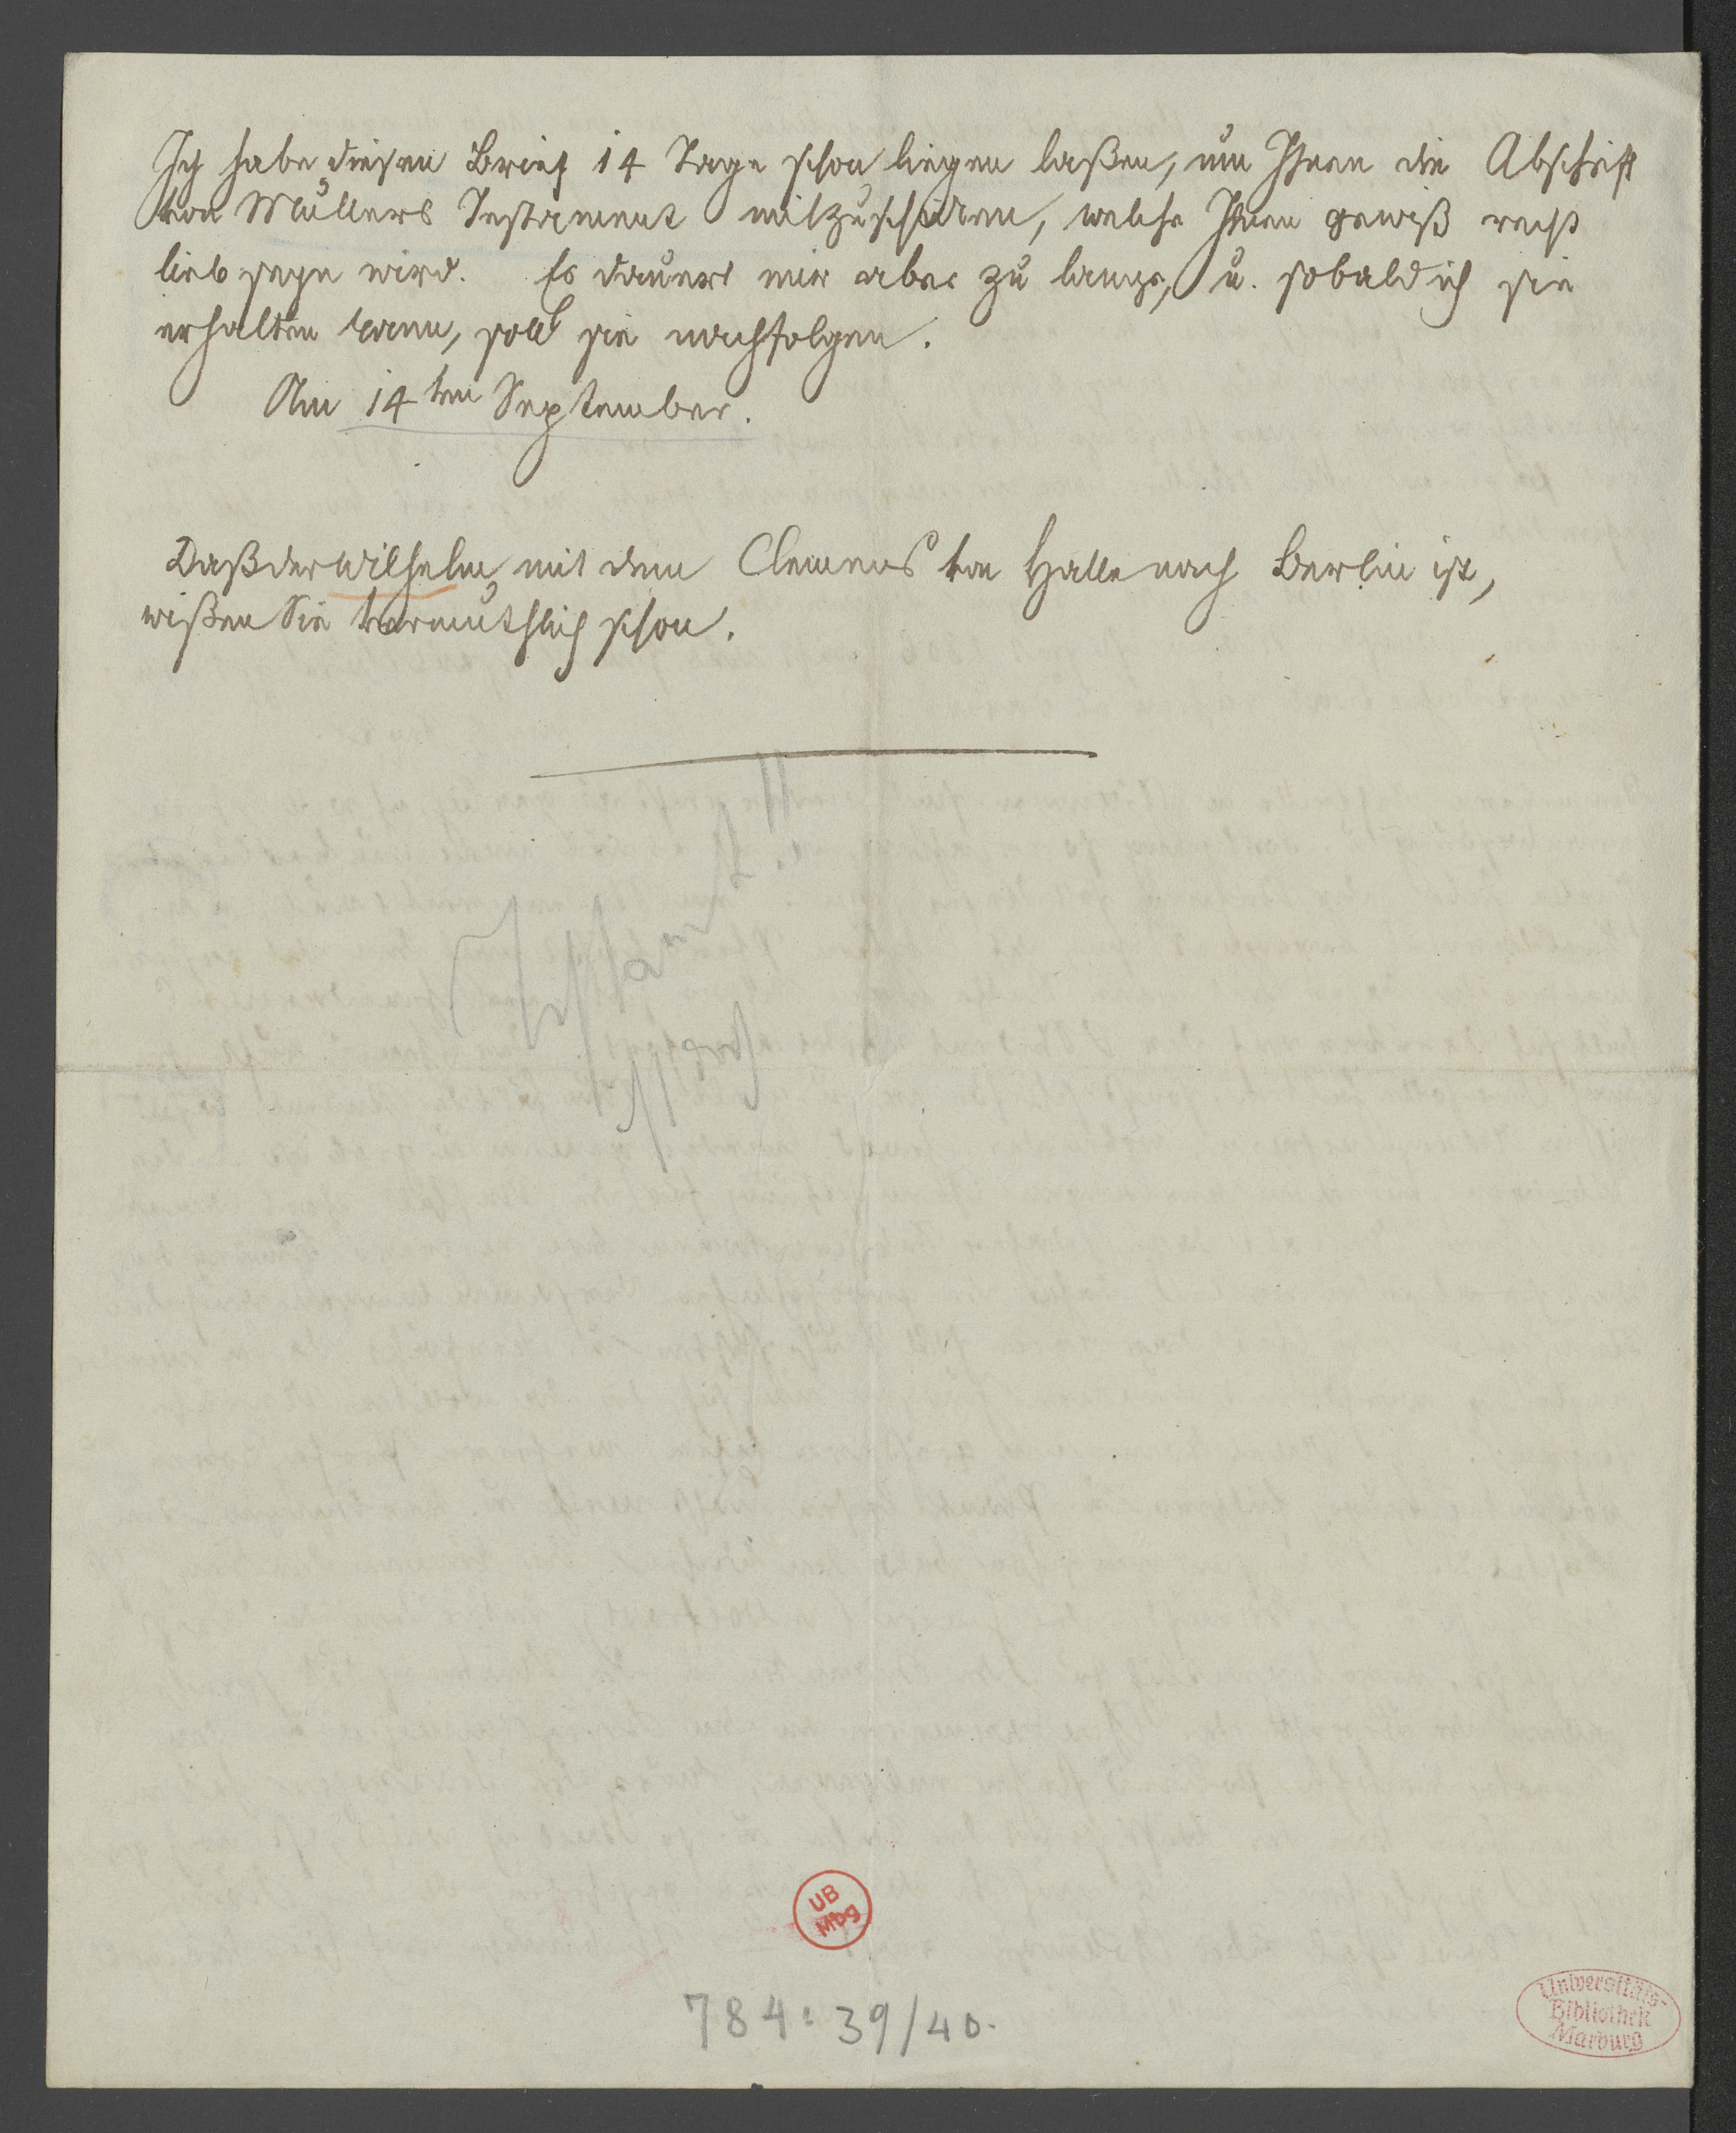 Ich habe diesen Brief 14 Tage schon liegen laßen, um Ihnen die Abschrift
von Müllers Testament mitzuschicken, welche Ihnen gewiß recht
lieb seyn wird. Es dauert mir aber zu lange, u. sobald ich sie
erhalten kann, soll sie nachfolgen.
Am 14ten September.
Daß der Wilhelm mit dem Clemens von Halle nach Berlin ist,
wißen Sie vermuthlich schon.
UB
Mbg
784:39/40.
Universitäts-
Bibliothek
Marburg